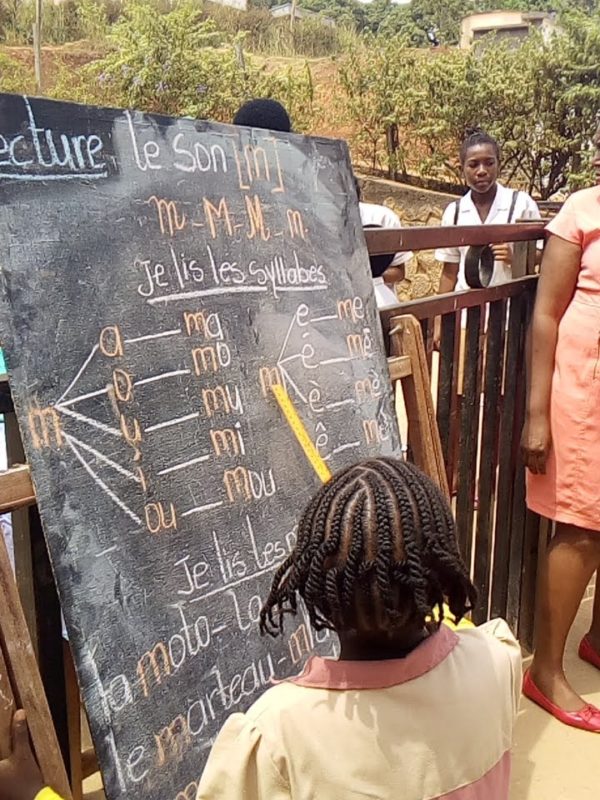 ecture le son [m]
m - M - M - m.
Je lis les syllabes
m
a — ma
o — mo
u — mu
i — mi
ou — mou
m
e — me
é — mé
è — mè
ê —
Je lis les
la moto - la
le marteau - m